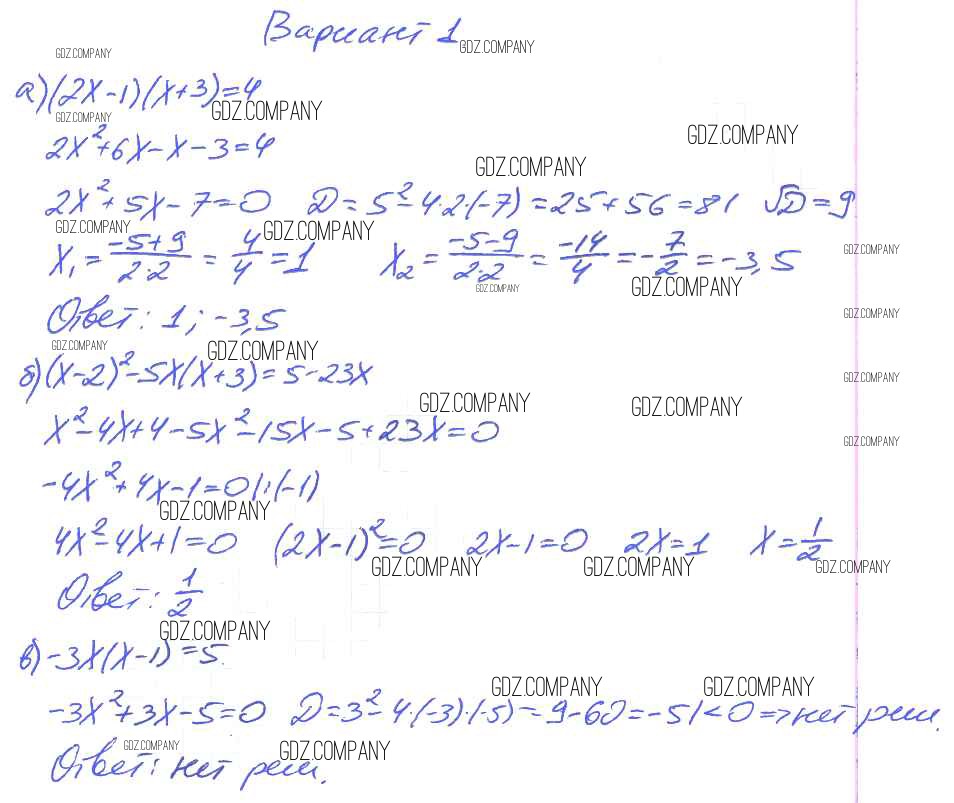 Вариант 1
GDZ.COMPANY GDZ.COMPANY
а) (2x-1)(x+3)=4
GDZ.COMPANY GDZ.COMPANY GDZ.COMPANY
2x²+6x-x-3=4
GDZ.COMPANY
2x²+5x-7=0 D=5²-4·2·(-7)=25+56=81 √D=9
GDZ.COMPANY GDZ.COMPANY GDZ.COMPANY
x₁=(-5+9)/(2·2)=4/4=1 x₂=(-5-9)/(2·2)=-14/4=-7/2=-3,5
GDZ.COMPANY GDZ.COMPANY
Ответ: 1; -3,5
GDZ.COMPANY
GDZ.COMPANY GDZ.COMPANY
б) (x-2)²-5x(x+3)=5-23x
GDZ.COMPANY
GDZ.COMPANY GDZ.COMPANY
x²-4x+4-5x²-15x-5+23x=0
GDZ.COMPANY
-4x²+4x-1=0|:(-1)
GDZ.COMPANY
4x²-4x+1=0 (2x-1)²=0 2x-1=0 2x=1 x=1/2
GDZ.COMPANY GDZ.COMPANY GDZ.COMPANY
Ответ: 1/2
GDZ.COMPANY
в) -3x(x-1)=5
GDZ.COMPANY GDZ.COMPANY
-3x²+3x-5=0 D=3²-4·(-3)·(-5)=9-60=-51<0=>нет реш.
GDZ.COMPANY GDZ.COMPANY
Ответ: нет реш.